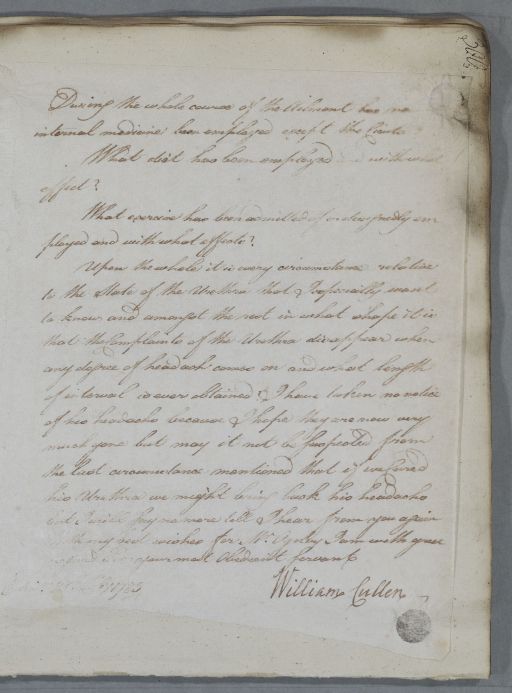 During the whole course of the Ailment has no
internal medicine been employed except the Cicuta?
What diet has been employed and with what
effect?
What exercise has been admitted of or designedly em
ployed and with what effects?
Upon the whole it is every circumstance relative
to the State of the Urethra that I especially want
to know and amongst the rest in what shape it is
that the Complaints of the Urethra disappear when
any degree of headach comes on and what length
of interval is ever obtained. I have taken no notice
of his headachs because I hope they are now very
much gone but may it not be suspected from
the last circumstance mentioned that if we cured
his Urethra we might bring back his headachs
but I will say no more till I hear from you again
with my best wishes for Mr. I am with great
regard Sir your most Obedient Servant
1783
William Cullen